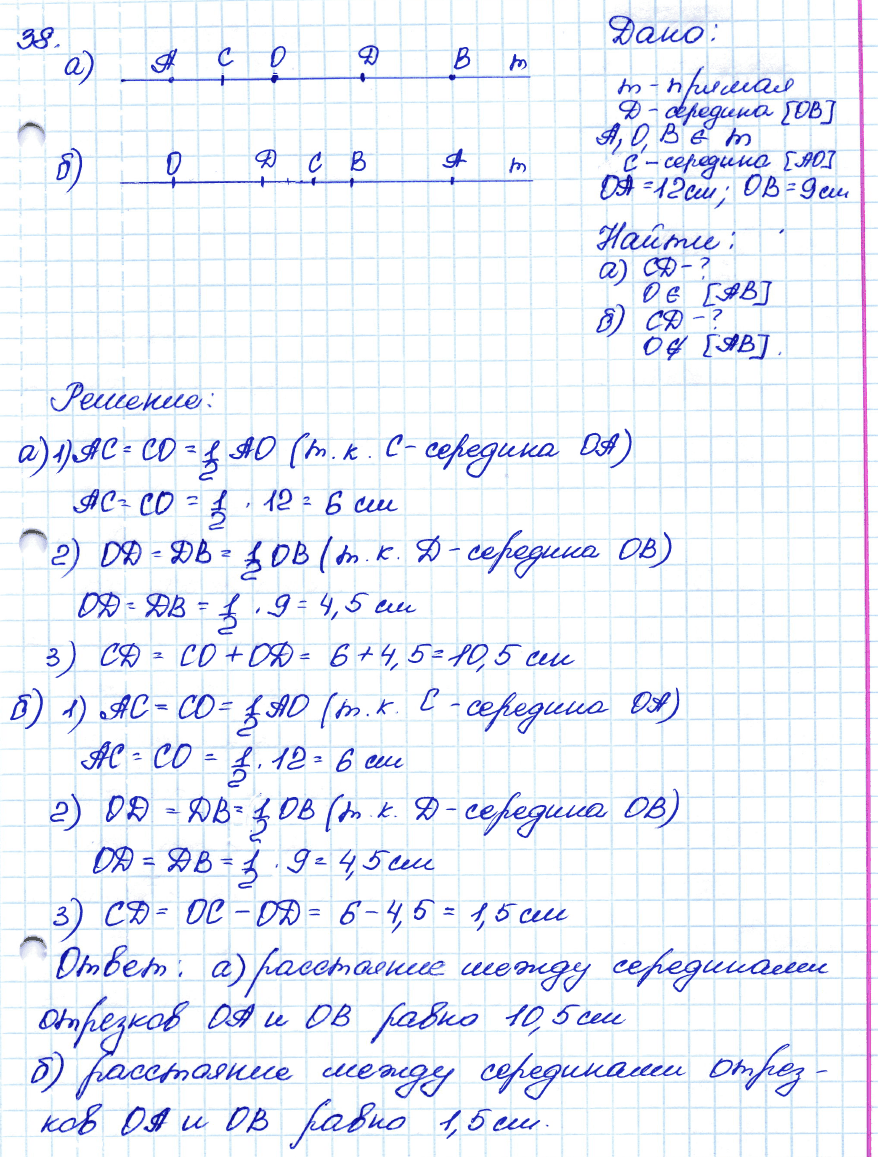 38.
а) А С О D В m
б) О D С В А m
Дано:
m - прямая
D - середина [OB]
A, O, B ∈ m
C - середина [AO]
OA = 12 см; OB = 9 см
Найти:
а) CD - ?
O ∈ [AB]
б) CD - ?
O ∉ [AB].
Решение:
а) 1) AC = CO = 1/2 AO (т.к. C - середина OA)
AC = CO = 1/2 · 12 = 6 см
2) OD = DB = 1/2 OB (т.к. D - середина OB)
OD = DB = 1/2 · 9 = 4,5 см
3) CD = CO + OD = 6 + 4,5 = 10,5 см
б) 1) AC = CO = 1/2 AO (т.к. C - середина OA)
AC = CO = 1/2 · 12 = 6 см
2) OD = DB = 1/2 OB (т.к. D - середина OB)
OD = DB = 1/2 · 9 = 4,5 см
3) CD = OC - OD = 6 - 4,5 = 1,5 см
Ответ: а) расстояние между серединами
отрезков OA и OB равно 10,5 см
б) расстояние между серединами отрез-
ков OA и OB равно 1,5 см.